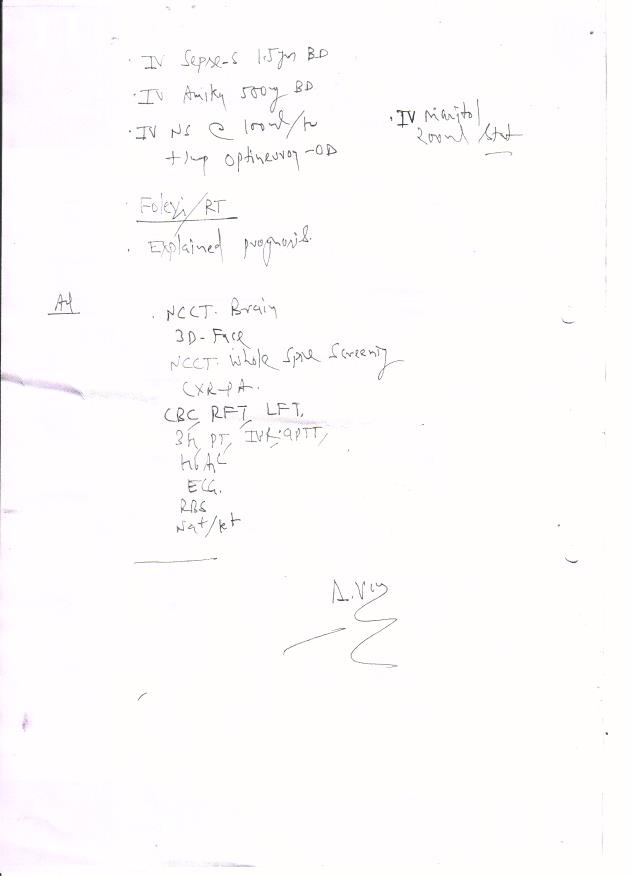 IV Sepxe-S 1.5gm BD
IV Amika 500mg BD
IV NS @ 100ml/hr
+ 1amp Optineuron -OD
IV Manitol
200ml Stat
Foley's/RT
Explained prognosis.
Ad
NCCT. Brain
3D-Face
NCCT. Whole Spine Screening
CXR-PA.
CBC, RFT, LFT,
PT, INR, aPTT,
ECG.
RBS
Na+/K+